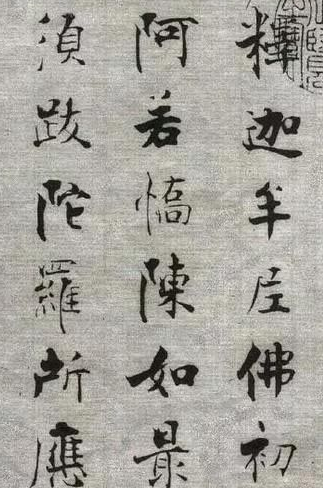 釋迦牟尼佛初
阿若憍陳如最
須跋陀羅所應